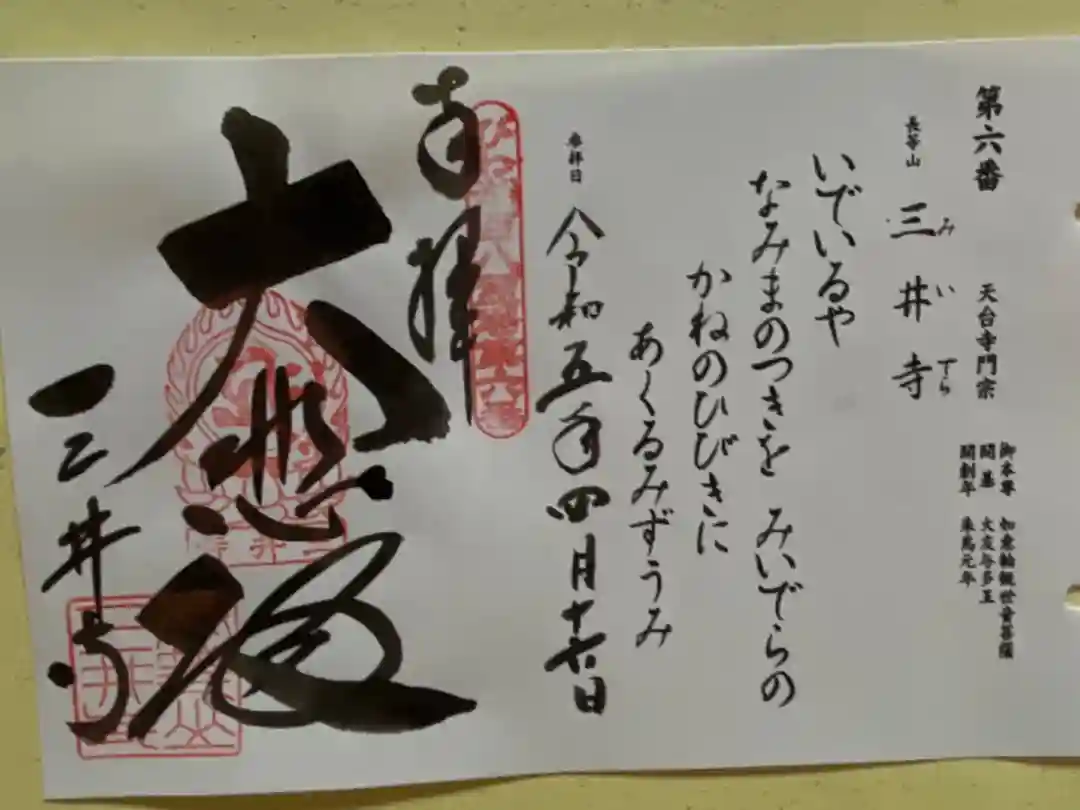 第六番
天台寺門宗
御本尊 如意輪観世音菩薩
開基 大友与多王
開創年 朱鳥元年
長等山
三井寺
みいでら
いでいるや
なみまのつきを みいでらの
かねのひびきに
あくるみずうみ
参拝日
令和五年四月十六日
奉拝
大悲殿
三井寺